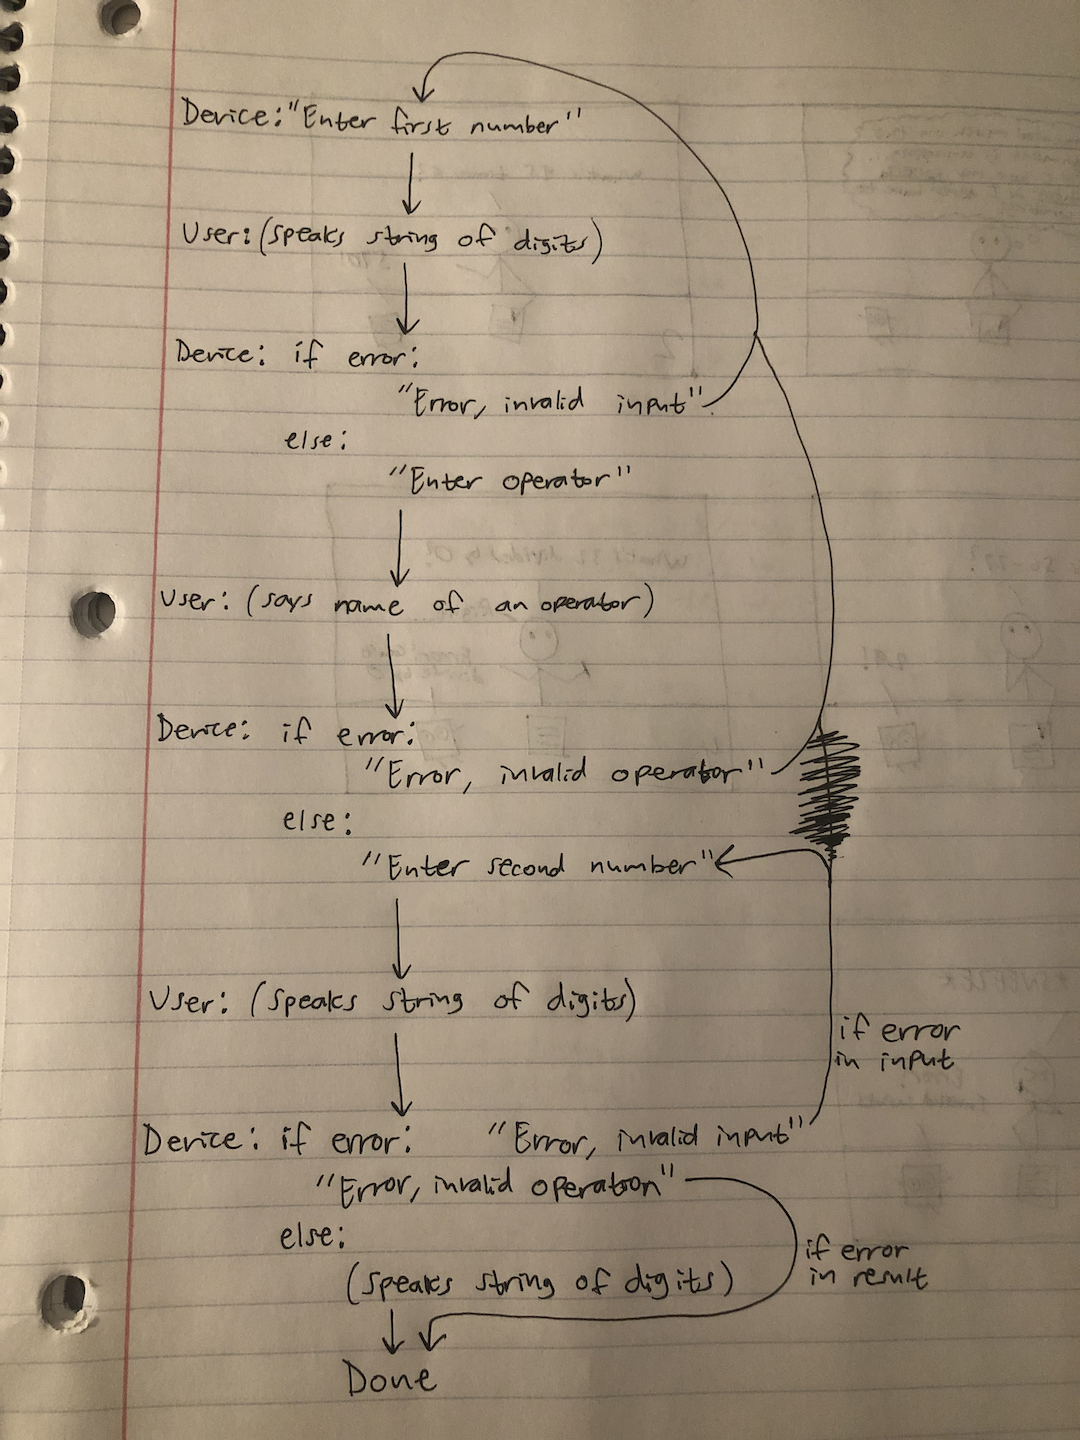 Device: "Enter first number"
User: (speaks string of digits)
Device: if error:
"Error, invalid input"
else:
"Enter operator"
User: (says name of an operator)
Device: if error:
"Error, invalid operator"
else:
"Enter second number"
User: (speaks string of digits)
if error
in input
Device: if error: "Error, invalid input"
"Error, invalid operation"
else:
if error
in result
(speaks string of digits)
Done